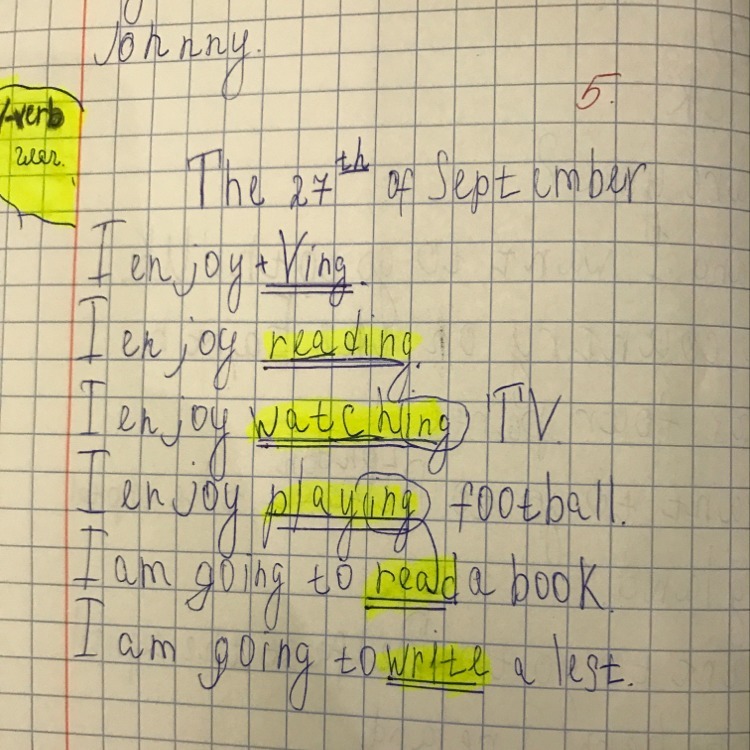 Johnny.
5.
V-verb
глаг.
The 27th of September
I enjoy + Ving.
I enjoy reading.
I enjoy watching TV.
I enjoy playing football.
I am going to read a book.
I am going to write a lest.